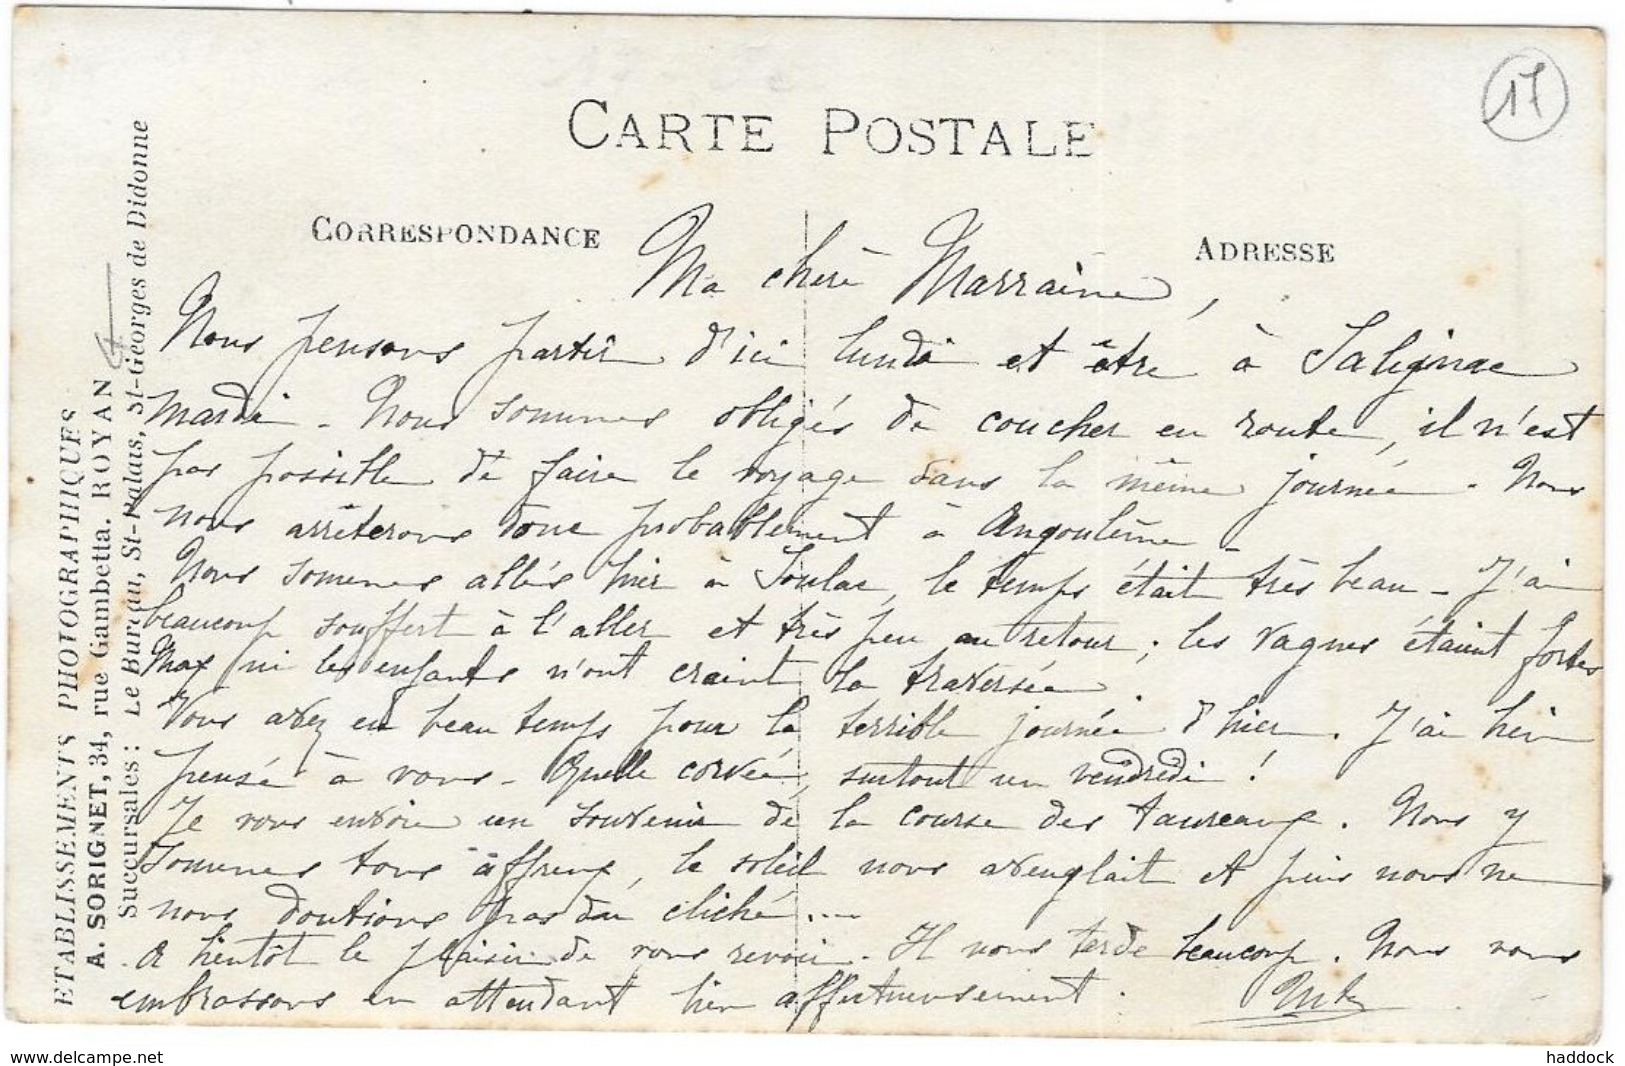 17
CARTE POSTALE
CORRESPONDANCE
ADRESSE
ETABLISSEMENTS PHOTOGRAPHIQUES
A. SORIGNET, 34, rue Gambetta. ROYAN
Succursales : Le Bureau, St-Palais, St-Georges de Didonne
Ma chère Marraine,
Nous pensons partir d'ici lundi et être à Salignac
mardi - Nous sommes obligés de coucher en route, il n'est
pas possible de faire le voyage dans la même journée. Nous
nous arrêterons donc probablement à Angoulême -
Nous sommes allés hier à Soulac, le temps était très beau - J'ai
beaucoup souffert à l'aller et très peu au retour ; les vagues étaient fortes
Max ni les enfants n'ont craint la traversée.
Vous avez eu beau temps pour la terrible journée d'hier. J'ai bien
pensé à vous - Quelle corvée, surtout un vendredi !
Je vous envoie un souvenir de la course des taureaux. Nous y
sommes tous affreux, le soleil nous aveuglait et puis nous ne
nous doutions pas du cliché....
A bientôt le plaisir de vous revoir. Il nous tarde beaucoup. Nous vous
embrassons en attendant bien affectueusement.
www.delcampe.net
haddock